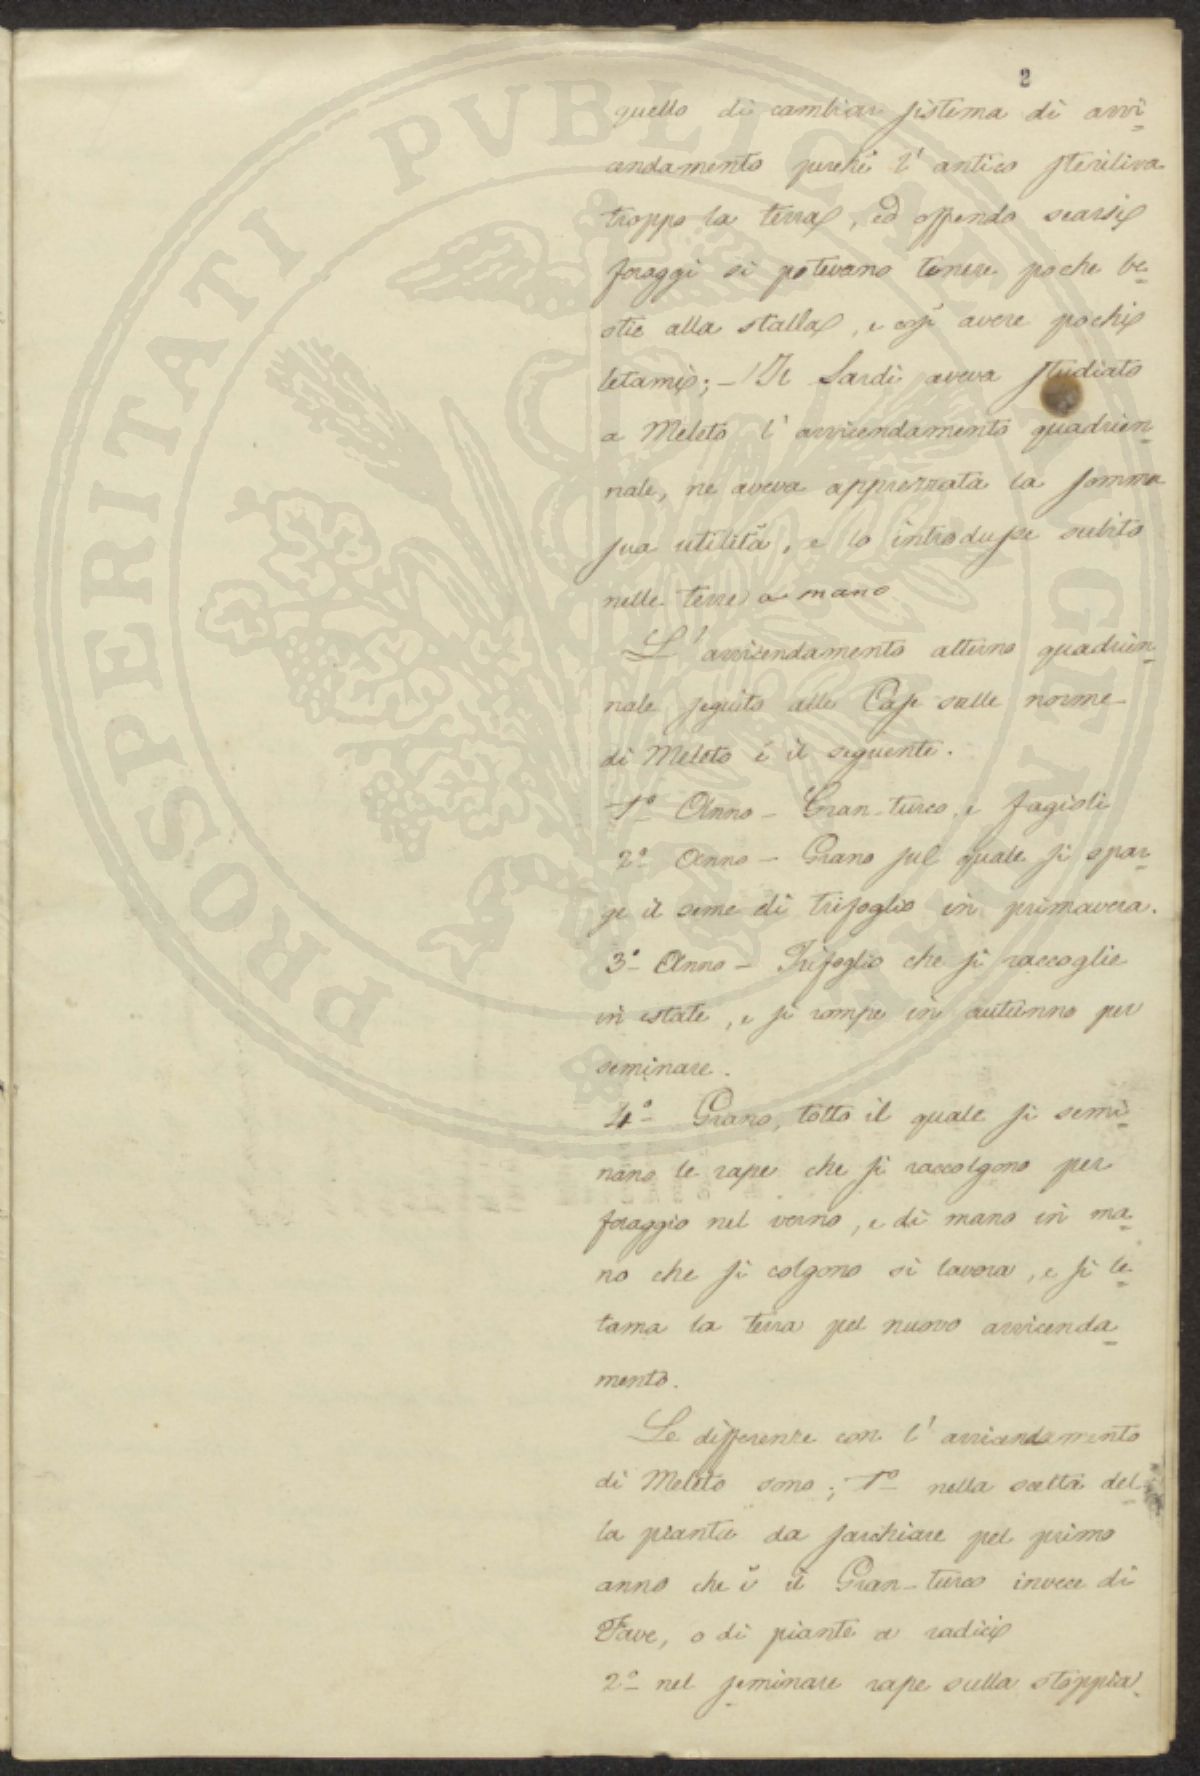 2
quello di cambiar sistema di avvi-
cendamento perché l'antico steriliva
troppo la terra, ed essendo scarsi
foraggi si potevano tenere poche be-
stie alla stalla, e così avere pochi
letami; - Il Sardi aveva studiato
a Meleto l'avvicendamento quadrien-
nale, ne aveva apprezzata la somma
sua utilità, e lo introdusse subito
nelle terre a mano
L'avvicendamento alterno quadrien-
nale seguito alle Case sulle norme
di Meleto è il seguente.
1º Anno - Gran-turco, e fagioli
2º Anno - Grano sul quale si spar-
ge il seme di trifoglio in primavera.
3º Anno - Trifoglio che si raccoglie
in estate, e si rompe in autunno per
seminare.
4º - Grano, totto il quale si semi-
nano le rape che si raccolgono per
foraggio nel verno, e di mano in ma-
no che si colgono si lavora, e si le-
tama la terra pel nuovo avvicenda-
mento.
Le differenze con l'avvicendamento
di Meleto sono; 1º nella scelta del-
la pianta da sarchiare pel primo
anno che è il Gran-turco invece di
Fave, o di piante a radici
2º nel seminare rape sulla stoppia
PROSPERITATI PVBLICAE AVGENDAE